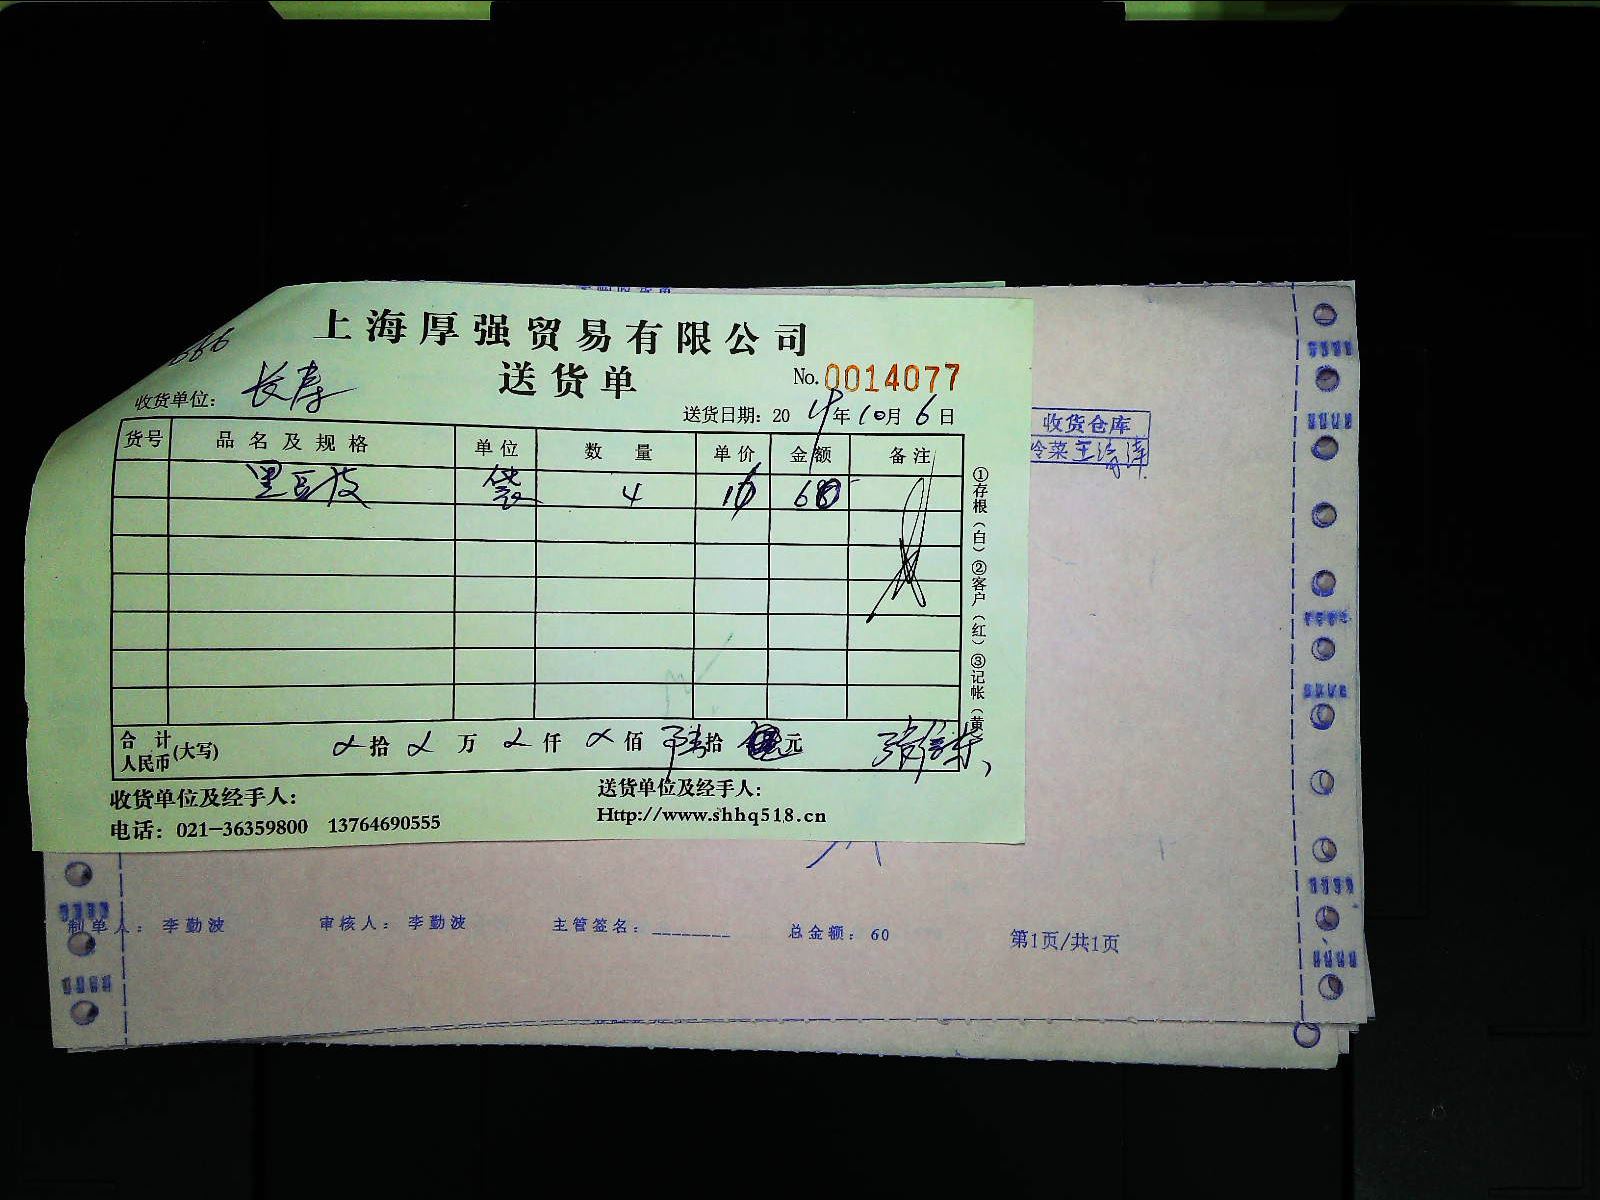 上海厚强贸易有限公司
送货单
No. 0014077
收货单位: 长寿
送货日期: 2014年10月6日
货号 品名及规格 单位 数量 单价 金额 备注
袋 4 60
①存根(白)②客户(红)③记帐(黄
合计人民币(大写) 拾 万 仟 佰 陆拾 元
收货单位及经手人:
送货单位及经手人:
电话: 021-36359800 13764690555
Http://www.shhq518.cn
收货仓库
冷菜
制单人: 李勤波 审核人: 李勤波 主管签名: ________ 总金额: 60 第1页/共1页